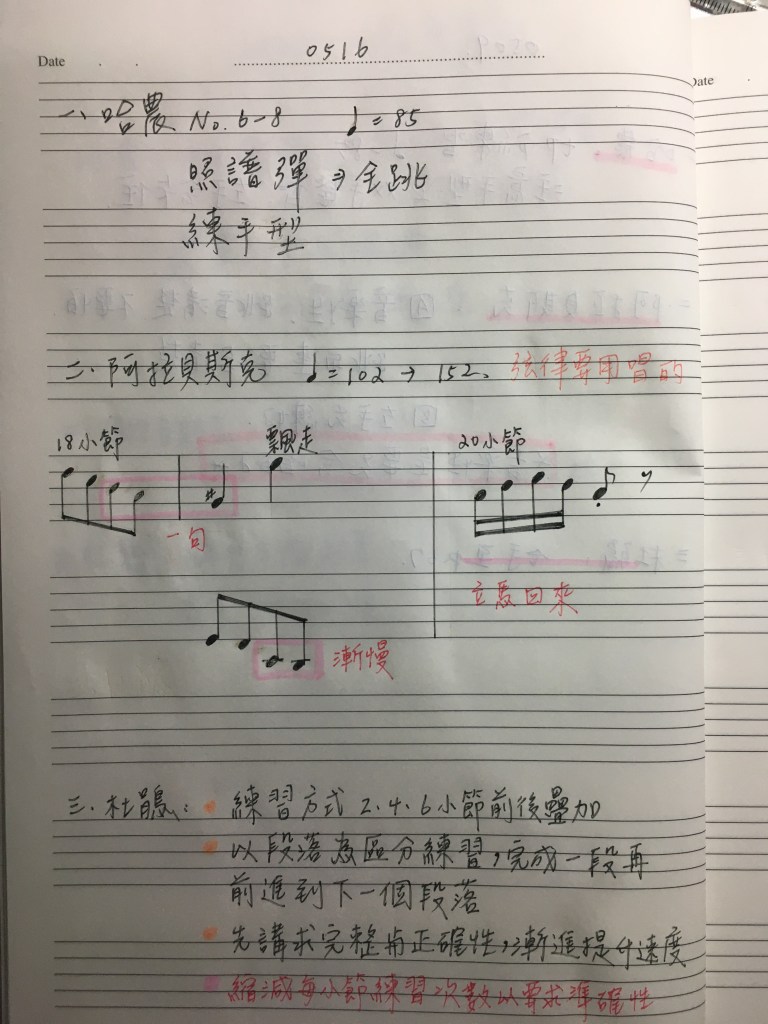 Date . . 0516
Date
一、哈農 No. 6-8 ♩=85
照譜彈 ⇒ 全跳
練手型
二、阿拉貝斯克 ♩=102 → 152、弦律要用唱的
18小節 飄走 20小節
一句
立馬回來
漸慢
三、杜鵑: 練習方式 2.4.6小節前後疊加
以段落為區分練習,完成一段再
前進到下一個段落
先講求完整而正確性,漸進提升速度
縮減每小節練習次數以要求準確性